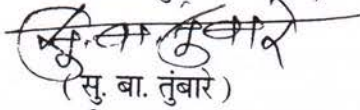 सु. बा. तुंबारे
(सु. बा. तुंबारे)